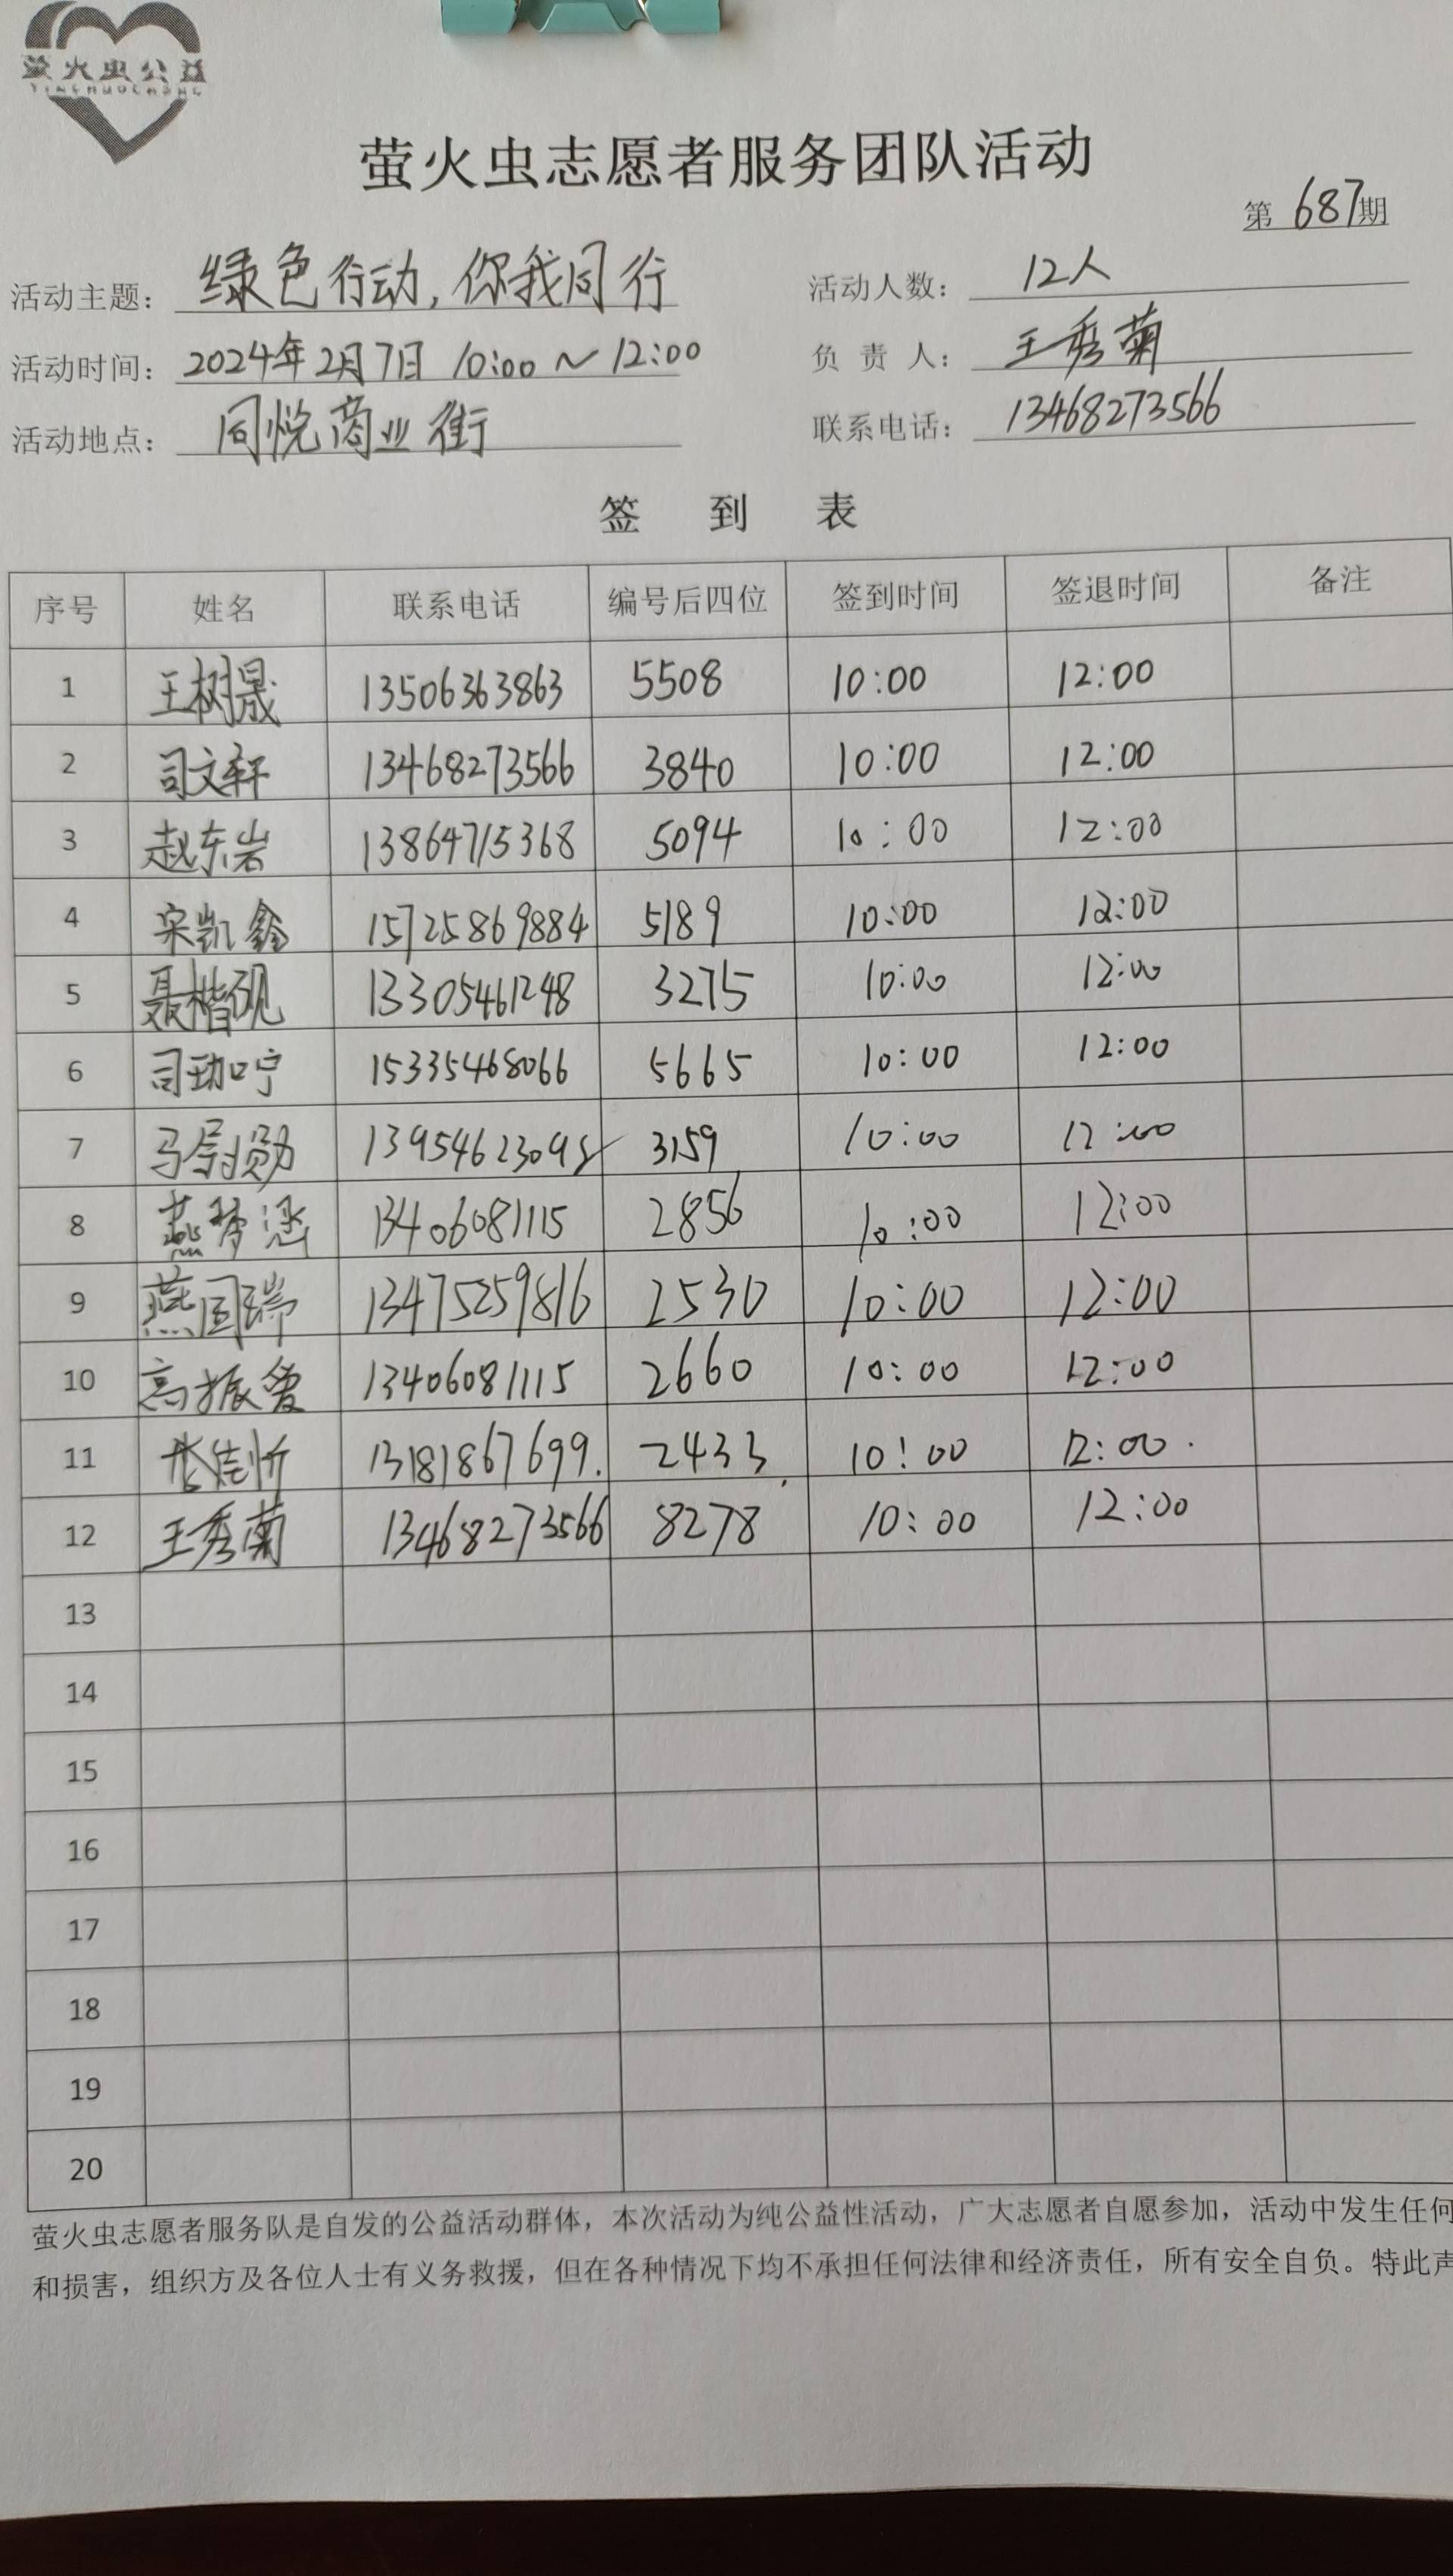 萤火虫公益
YINGHUOCHONG
萤火虫志愿者服务团队活动
第 687期
活动主题: 绿色行动,你我同行 活动人数: 12人
活动时间: 2024年2月7日 10:00~12:00 负 责 人: 王秀菊
活动地点: 同悦商业街 联系电话: 13468273566
签 到 表
序号 姓名 联系电话 编号后四位 签到时间 签退时间 备注
1 王树晟 13506363863 5508 10:00 12:00
2 司文轩 13468273566 3840 10:00 12:00
3 赵东岩 13864715368 5094 10:00 12:00
4 宋凯鑫 15725869884 5189 10:00 12:00
5 聂楷砚 13305461248 3275 10:00 12:00
6 司 15335468066 5665 10:00 12:00
7 马 3159 10:00 12:00
8 燕梦涵 13406081115 2856 10:00 12:00
9 燕国瑞 13475259816 2530 10:00 12:00
10 高振爱 13406081115 2660 10:00 12:00
11 张佳忻 13181867699. 2433. 10:00 12:00.
12 王秀菊 13468273566 8278 10:00 12:00
13
14
15
16
17
18
19
20
萤火虫志愿者服务队是自发的公益活动群体，本次活动为纯公益性活动，广大志愿者自愿参加，活动中发生任何
和损害，组织方及各位人士有义务救援，但在各种情况下均不承担任何法律和经济责任，所有安全自负。特此声